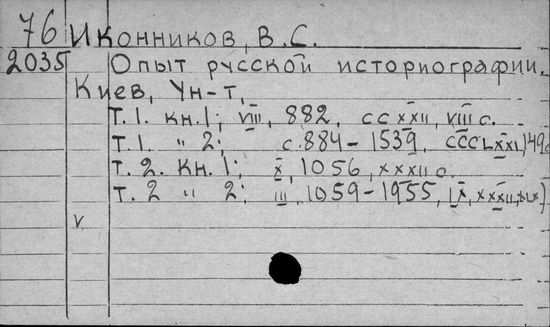 76 Иконников, В.С.
2035 Опыт русской историографии.
Киев, Ун-т,
Т.1. кн.1; VIII, 882, CCXXII, VIII с.
Т.1. " 2; с.884-1539, CCCLXXI, 149с
Т.2. Кн.1; X, 1056, XXXII с.
Т.2 " 2; III, 1059-1955, IX, XXXII,
v